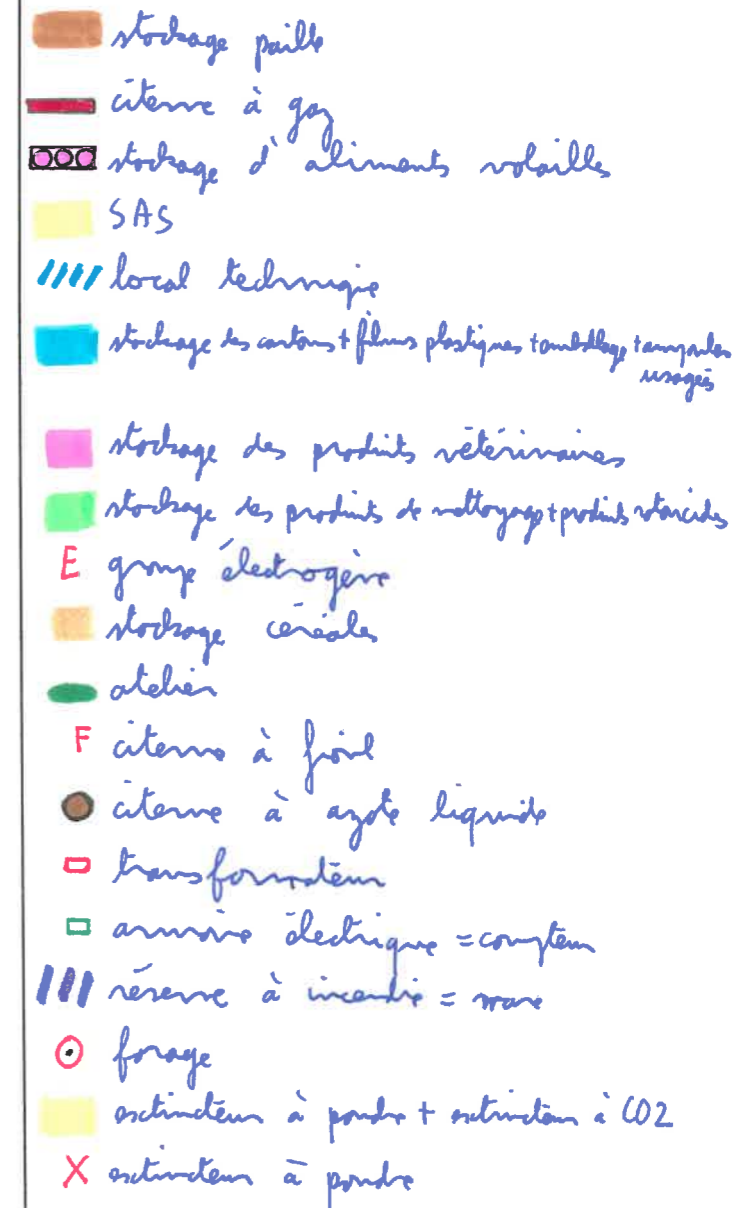 stockage paille
citerne à gaz
stockage d'aliments volailles
SAS
local technique
stockage des cartons + films plastiques + emballage + ampoules
usagés
stockage des produits vétérinaires
stockage des produits de nettoyage + produits rotancides
E groupe électrogène
stockage céréales
atelier
F citerne à fioul
citerne à azote liquide
transformateur
armoire électrique = compteur
réserve à incendie = mare
forage
extincteur à poudre + extincteur à CO2
X extincteur à poudre